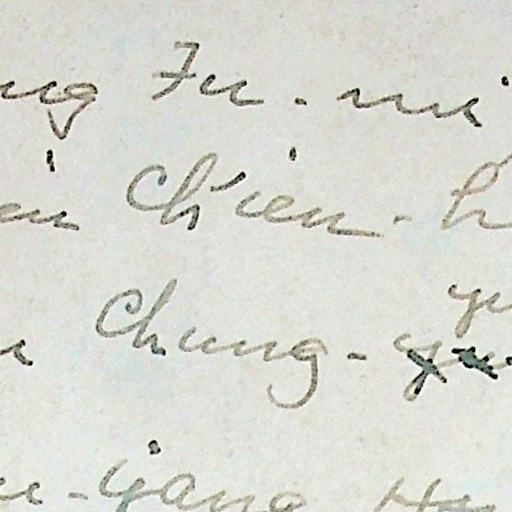 ng Fu-mi
en Ch'ien-h
yu
n Chung-yu
u-yang Hs